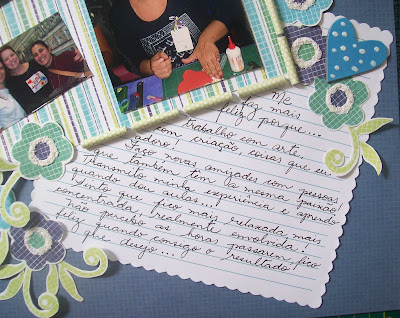 Me
faz mais
feliz porque...
trabalho com arte,
com criação, coisas que eu
adoro!
Faço novas amizades com pessoas
que também tem la mesma paixão,
transmito minha experiência e aprendo
quando dou aulas...
Sinto que fico mais relaxada, mais
concentrada, realmente envolvida!
Não percebo as horas passarem, fico
feliz quando consigo o resultado
que desejo...